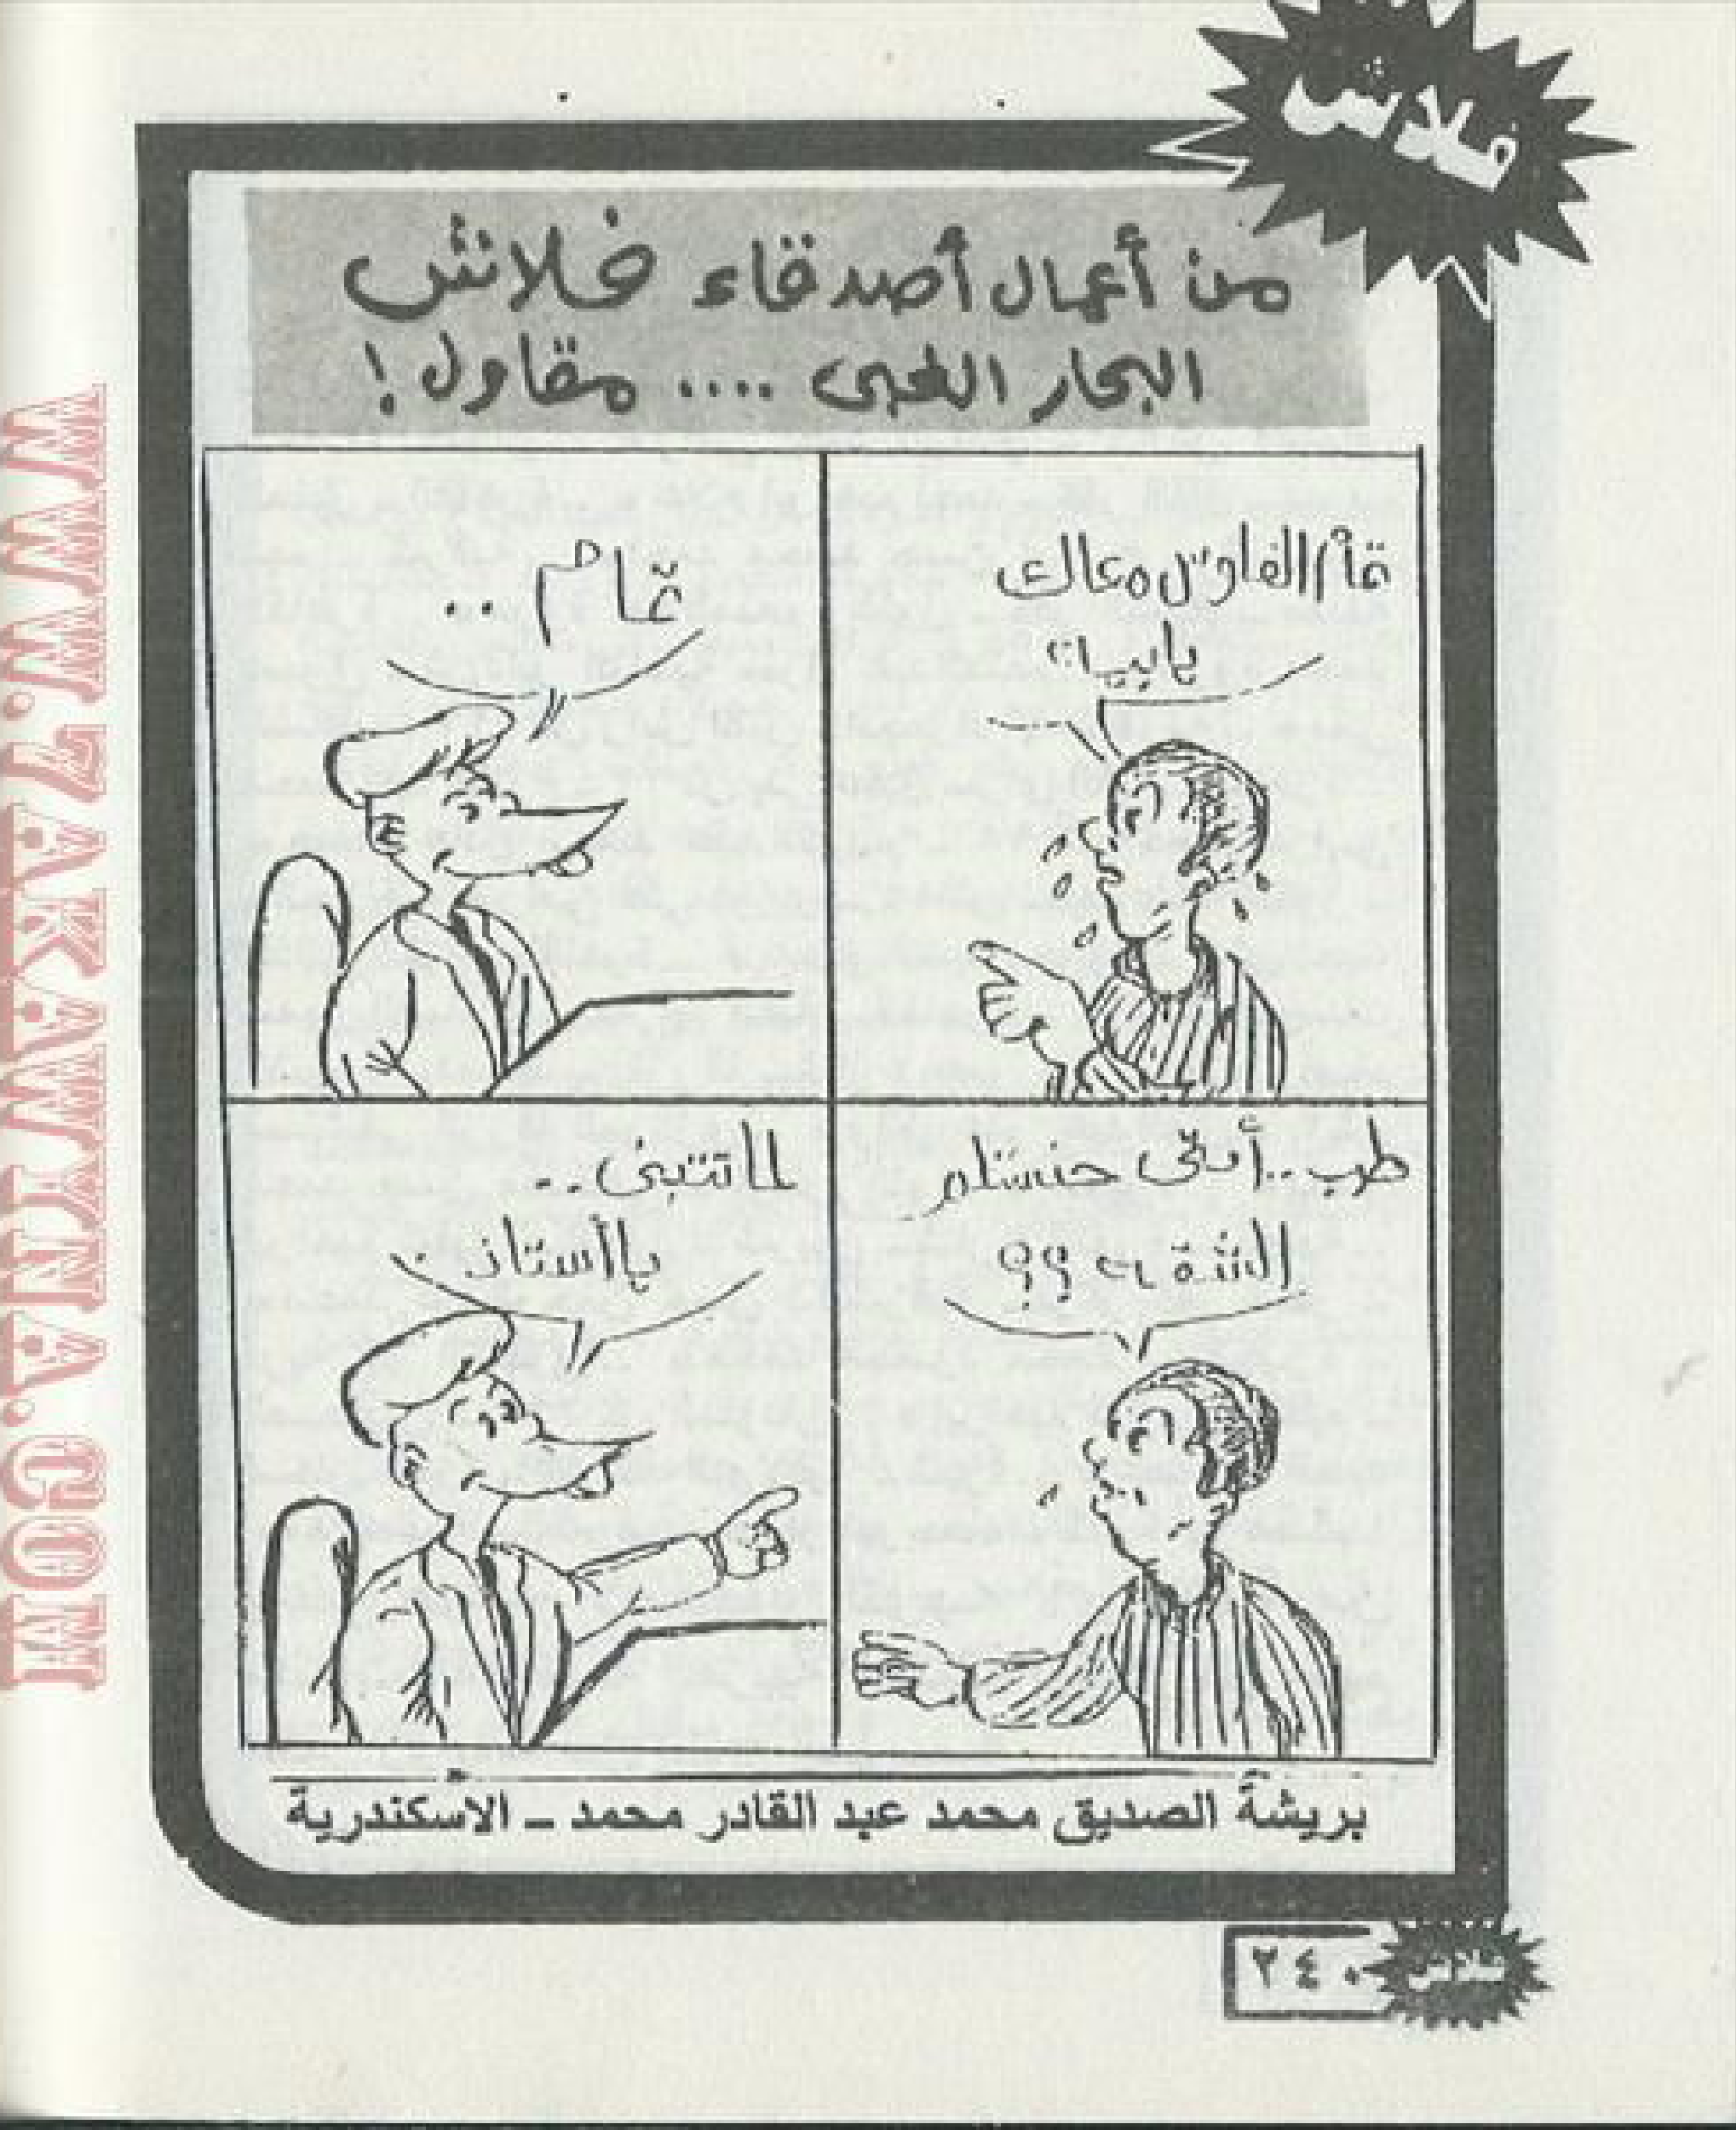 فلاش
من أعمال أصدقاء فلاش
البحار الغبى .... مقاول !
تمام الفلوس معاك
يا بيه ؟
تمام ..
طيب .. أمتى حنستلم
الشقة ؟؟
لما تتبنى ..
يا أستاذ .
بريشة الصديق محمد عبد القادر محمد ــ الأسكندرية
٢٤٠
فلاش
WWW.7AKAWITNA.COM